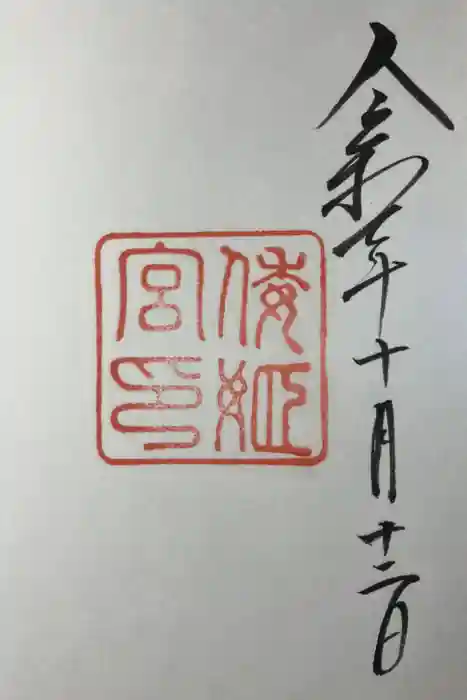 令和七年十月十二日
倭姫
宮印